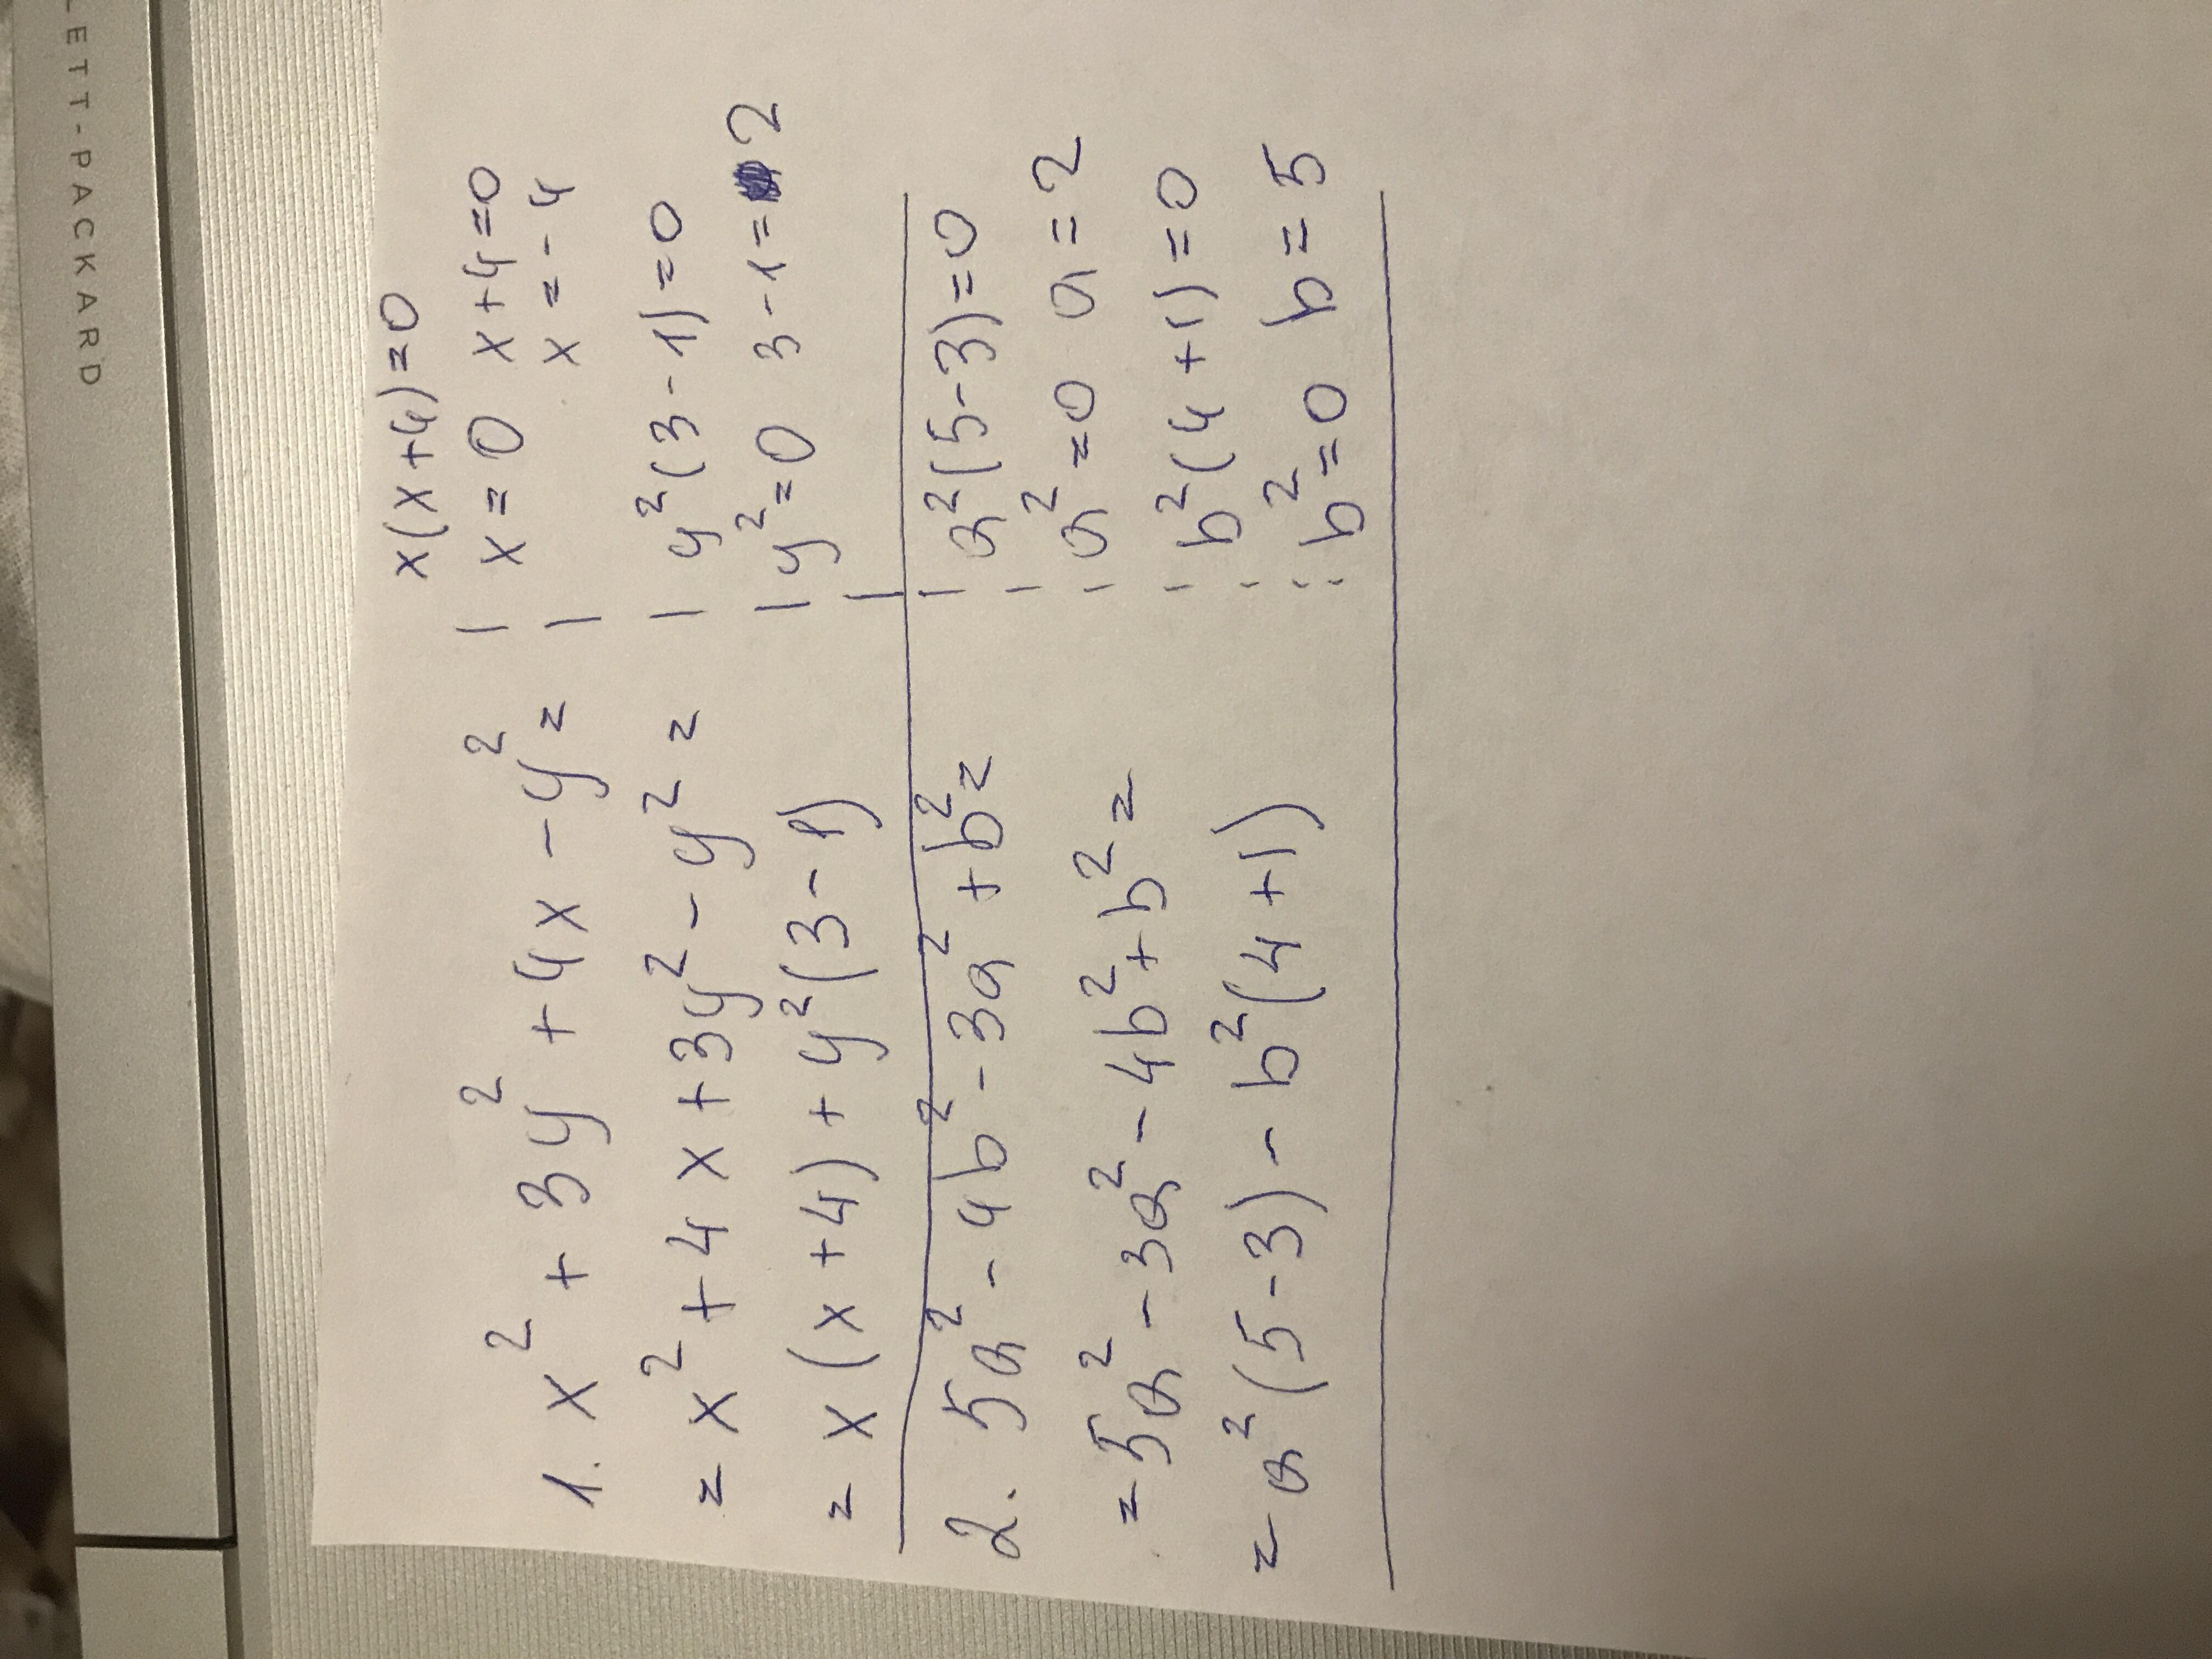 LETT-PACKARD
1. x² + 3y² + 4x - y² =
= x² + 4x + 3y² - y² =
= x(x+4) + y²(3-1)
x(x+4)=0
x=0 x+4=0
x=-4
y²(3-1)=0
y²=0 3-1=2
2. 5a² - 4b² - 3a² + b² =
= 5a² - 3a² - 4b² + b² =
= a²(5-3) - b²(4+1)
a²(5-3)=0
a²=0 a=2
b²(4+1)=0
b²=0 b=5